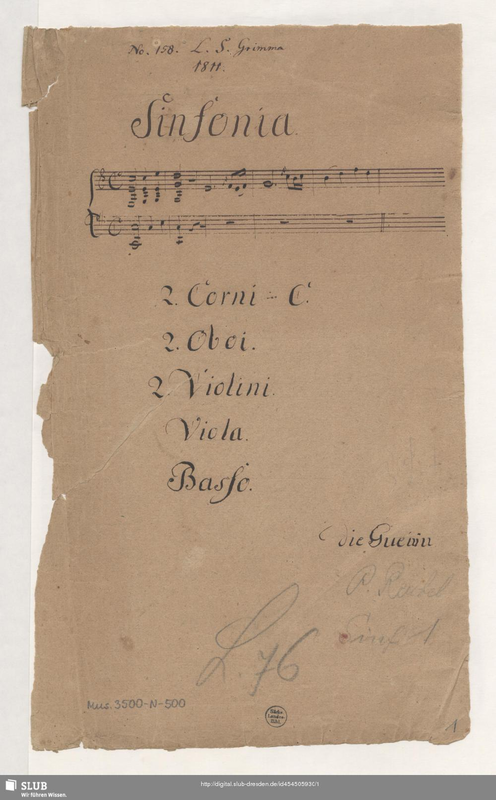 No. 158. L. S. Grimma
1811.
Sinfonia.
2. Corni - C.
2. Oboi.
2. Violini.
Viola.
Basso.
L. 76
Sinf 1
Mus. 3500-N-500
1
SLUB
Wir führen Wissen.
http://digital.slub-dresden.de/id454505930/1